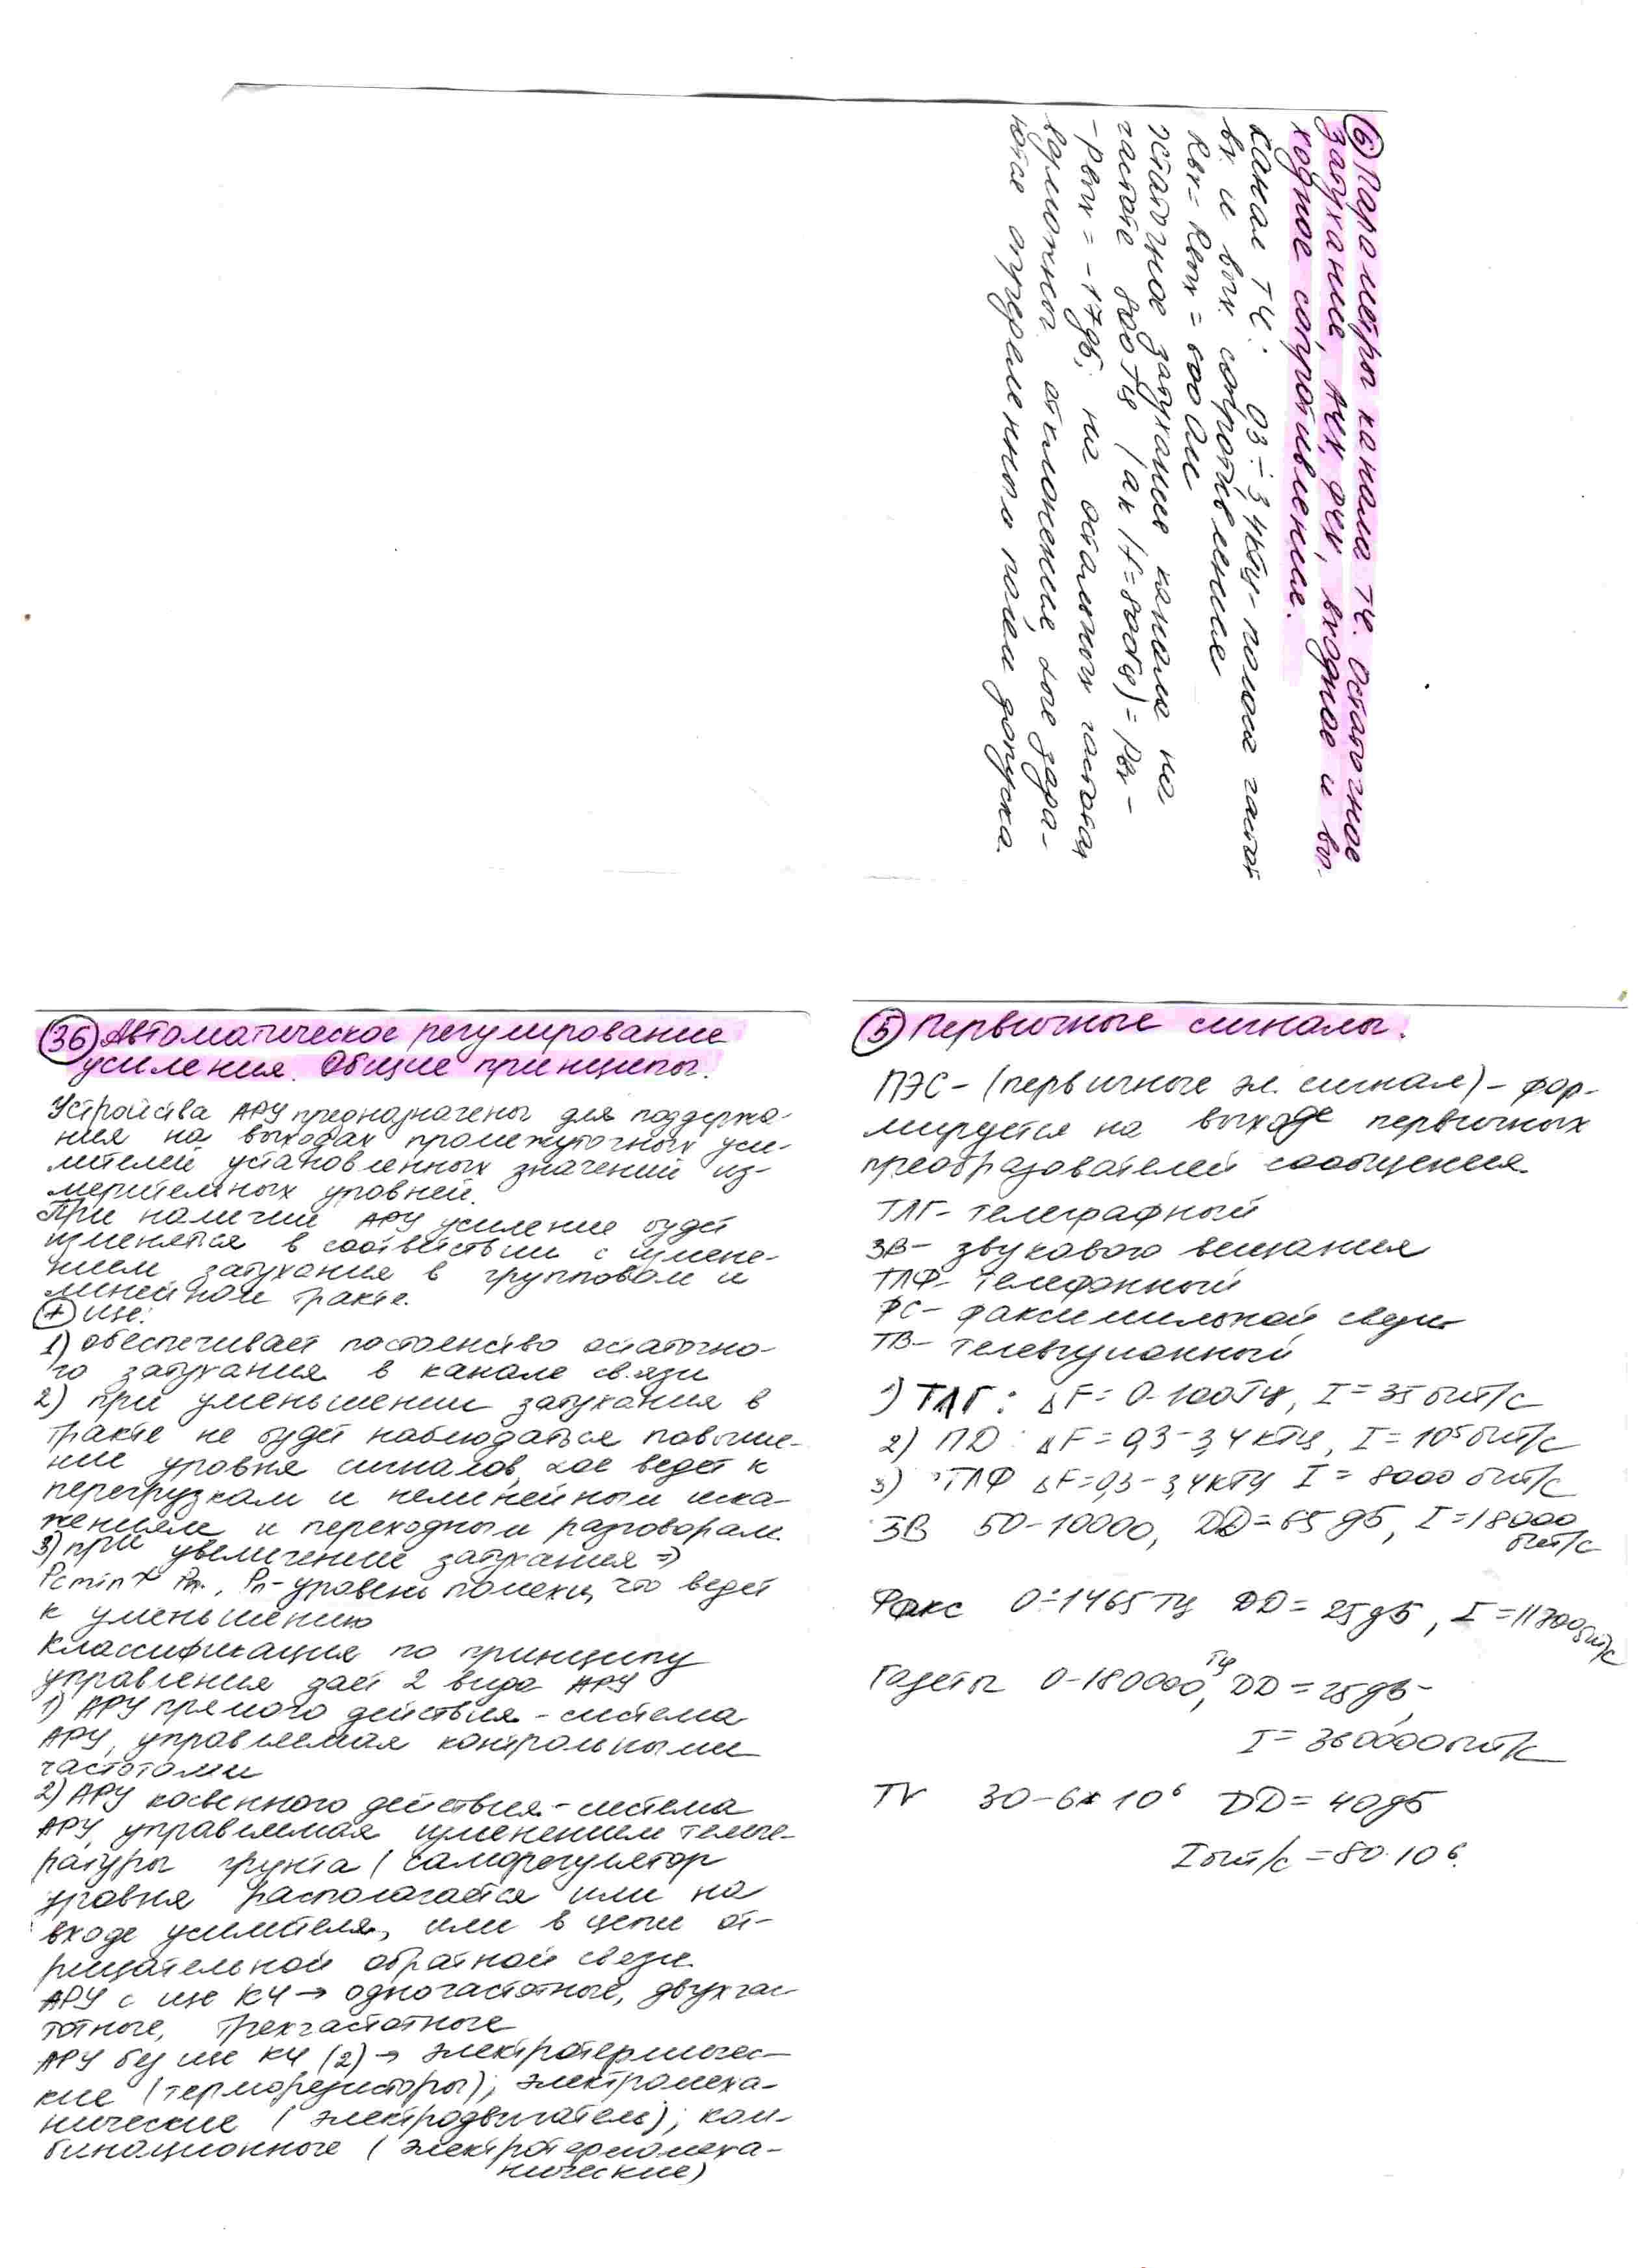 6 Параметры канала ТЧ. Остаточное
затухание, АЧХ, ФЧХ, входное и вы-
ходное сопротивление.
Канал ТЧ: 0,3÷3,4кГц - полоса частот
вх. и вых. сопротивление
Rвх = Rвых = 600 Ом
Остаточное затухание канала на
частоте 800 Гц (ar (f=800Гц) = Рвх -
- Рвых = -17дБ; на остальных частотах
отклонение ar зада-
ются определенного поля допуска.
36 Автоматическое регулирование
усиления. Общие принципы.
Устройства АРУ предназначены для поддержа-
ния на выходах промежуточных уси-
лителей установленных значений из-
мерительных уровней.
При наличии АРУ усиление будет
изменятся в соответствии с измене-
нием затухания в групповом и
линейном тракте.
+ ще:
1) обеспечивает постоянство остаточно-
го затухания в канале связи
2) при уменьшении затухания в
тракте не будет наблюдаться повыше-
ние уровня сигналов, ведет к
перегрузкам и нелинейным иска-
жениям и переходным разговорам.
3) при увеличение затухания =>
Pc min Pп, Рп - уровень помехи, что ведет
к уменьшению
Классификация по принципу
управления дает 2 вида АРУ
1) АРУ прямого действия - система
АРУ, управляемая контрольными
частотами
2) АРУ косвенного действия - система
АРУ, управляемая изменением темпе-
ратуры грунта (саморегулятор
уровня располагается или на
входе усилителя, или в цепи от-
рицательной обратной связи
АРУ с КЧ → одночастотные, двухчас-
тотные, трехчастотные
АРУ без КЧ (2) → электротермичес-
кие (терморезисторы); электромеха-
нические (электродвигатель); ком-
бинационные (электротермомеха-
нические)
5 Первичные сигналы.
ПЭС - (первичные эл. сигнал) - фор-
мируется на выходе первичных
преобразователей сообщения
ТЛГ - телеграфный
ЗВ - звукового вещания
ТЛФ - телефонный
ФС - факсимильной связи
ТВ - телевизионный
1) ТЛГ: ΔF = 0-100Гц, I = 35 бит/с
2) ПД: ΔF = 0,3-3,4 кГц, I = 10⁵ бит/с
3) ТЛФ ΔF = 0,3-3,4кГц I = 8000 бит/с
ЗВ 50-10000, DD = 65 дБ, I = 18000
бит/с
Факс 0÷1465 Гц DD = 25дБ, I = 11700 бит/с
Газеты 0-180000 Гц, DD = 25дБ-
I = 360000 бит/с
TV 30-6*10⁶ DD = 40дБ
I бит/с = 80·10⁶.